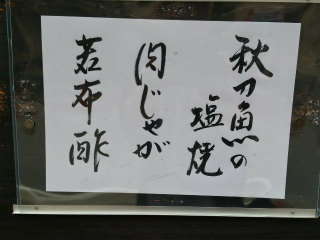 秋刀魚の
塩焼
肉じゃが
若布酢